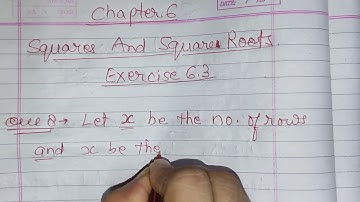 Chapter.6
Squares And Square Roots.
Exercise 6.3
Que 8→ Let x be the no. of rows
and x be the